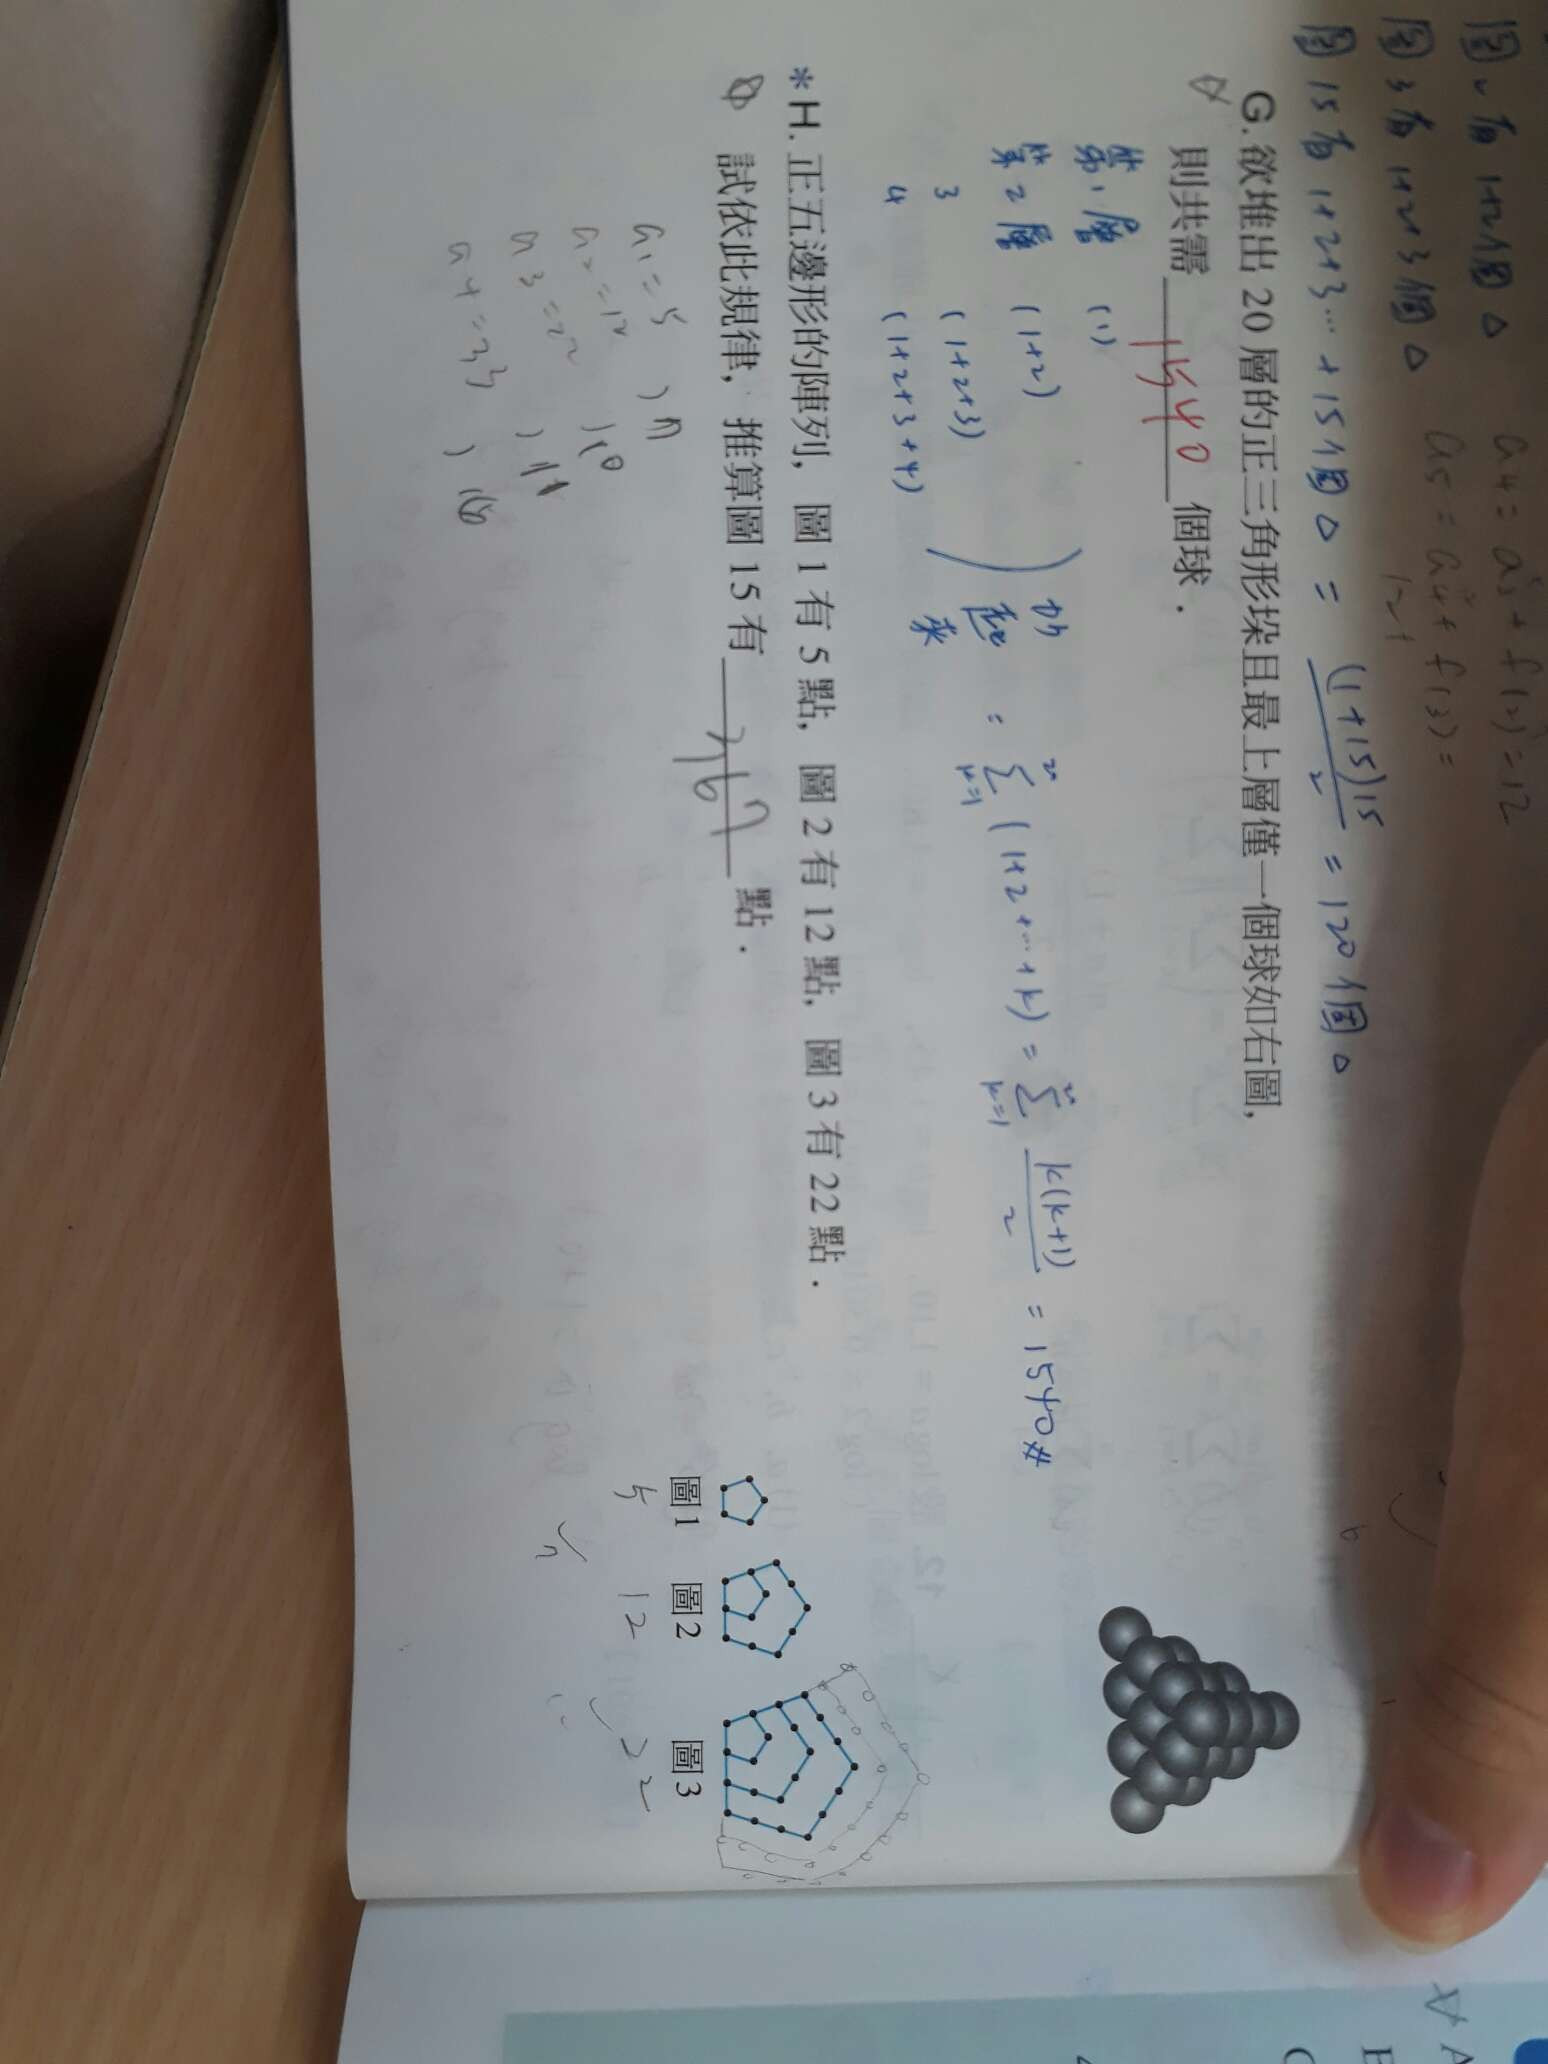 圖2有1+2個△ a4=a3+f(2)=12
圖3有1+2+3個△ a5=a4+f(3)=
12+
圖15有1+2+3…+15個△ = (1+15)15/2 = 120個△
G.欲堆出 20 層的正三角形垛且最上層僅一個球如右圖,
則共需 1540 個球.
第1層 (1)
第2層 (1+2)
3 (1+2+3)
4 (1+2+3+4)
加起來 = Σ k=1 (1+2+…+k) = Σ k=1 k(k+1)/2 = 1540#
*H.正五邊形的陣列, 圖 1 有 5 點, 圖 2 有 12 點, 圖 3 有 22 點.
試依此規律, 推算圖 15 有 點.
a1=5
a2=12
a3=22
a4=33
圖1 圖2 圖3
5 12 22